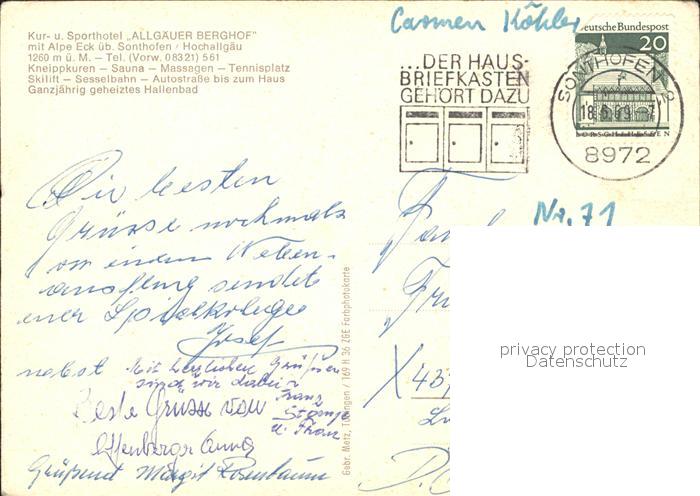 Kur- u. Sporthotel „ALLGÄUER BERGHOF"
mit Alpe Eck üb. Sonthofen / Hochallgäu
1260 m ü. M. – Tel. (Vorw. 08321) 561
Kneippkuren – Sauna – Massagen – Tennisplatz
Skilift – Sesselbahn – Autostraße bis zum Haus
Ganzjährig geheiztes Hallenbad
Carmen Köhler
...DER HAUS-
BRIEFKASTEN
GEHÖRT DAZU
Deutsche Bundespost
20
SONTHOFEN
18.6.69
8972
Die besten
Grüsse nochmals
von einem
sendet
euer
Josef
nebst
Mit herzlichen Grüßen
sind wir dabei
Franz
Beste Grüsse von
u. Franz
Anna
Grüssend Margit Rosenbaum
Gebr. Metz, Tübingen / 169 H 36 ZGE Farbphotokarte
Nr. 71
Fam
X 43
privacy protection
Datenschutz